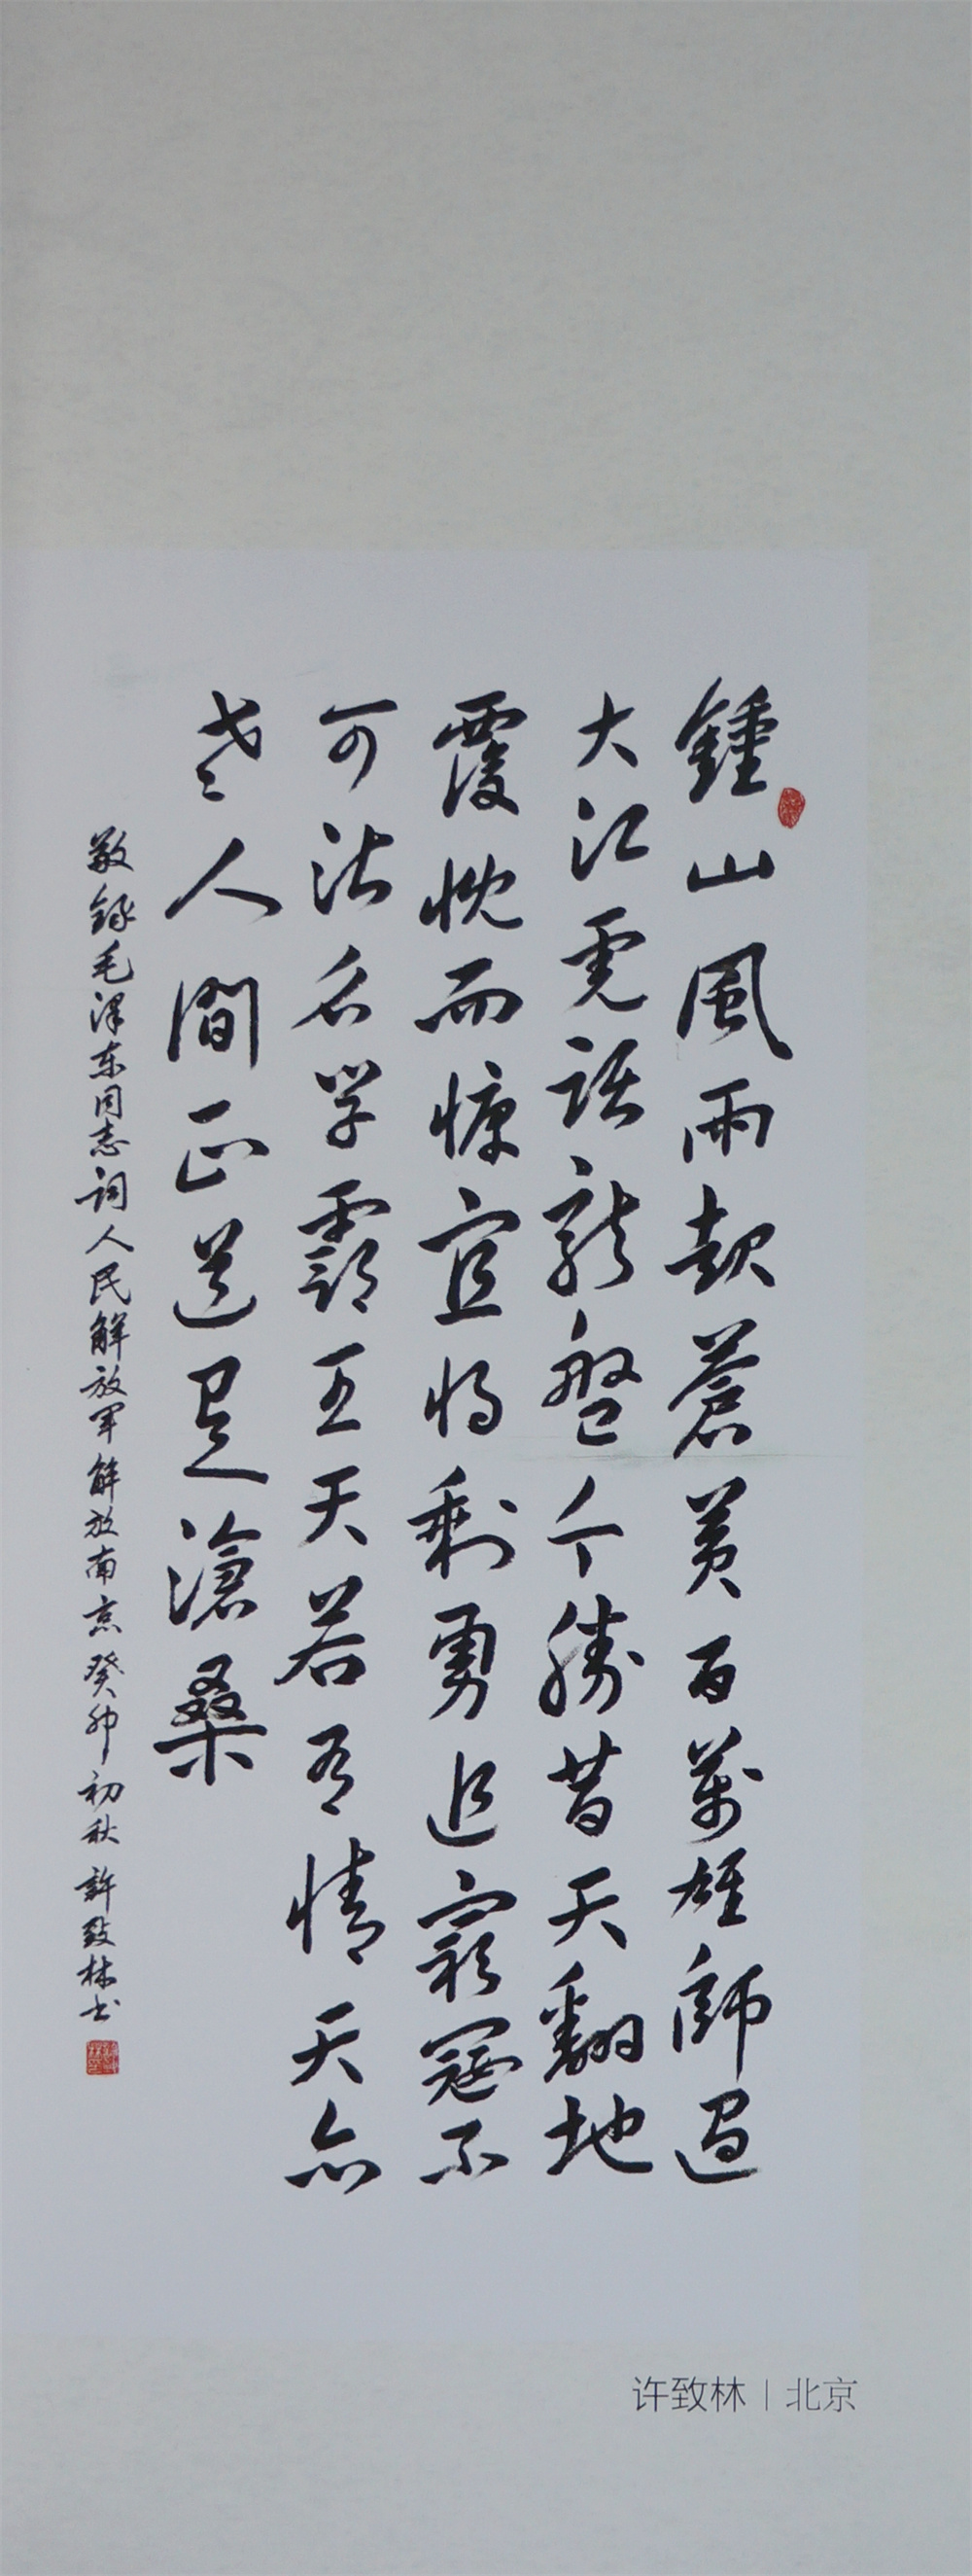 鍾山風雨起蒼黃百萬雄師過
大江虎踞龍盤今勝昔天翻地
覆慨而慷宜將剩勇追窮寇不
可沽名学霸王天若有情天亦
老人間正道是滄桑
敬錄毛泽东同志詞人民解放軍解放南京癸卯初秋許致林书
许致林 | 北京